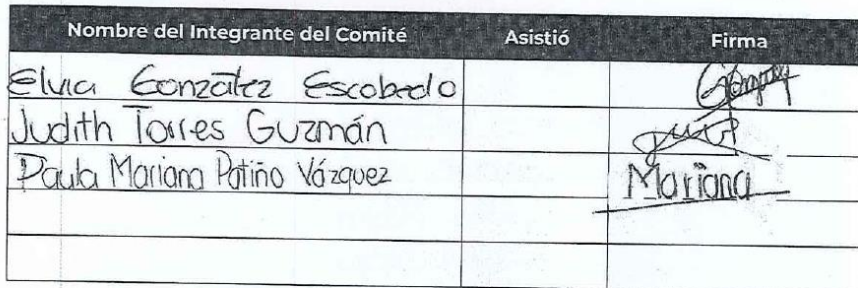 Nombre del Integrante del Comité Asistió Firma
Elvia González Escobedo
Judith Torres Guzmán
Paula Mariana Patiño Vázquez Mariana